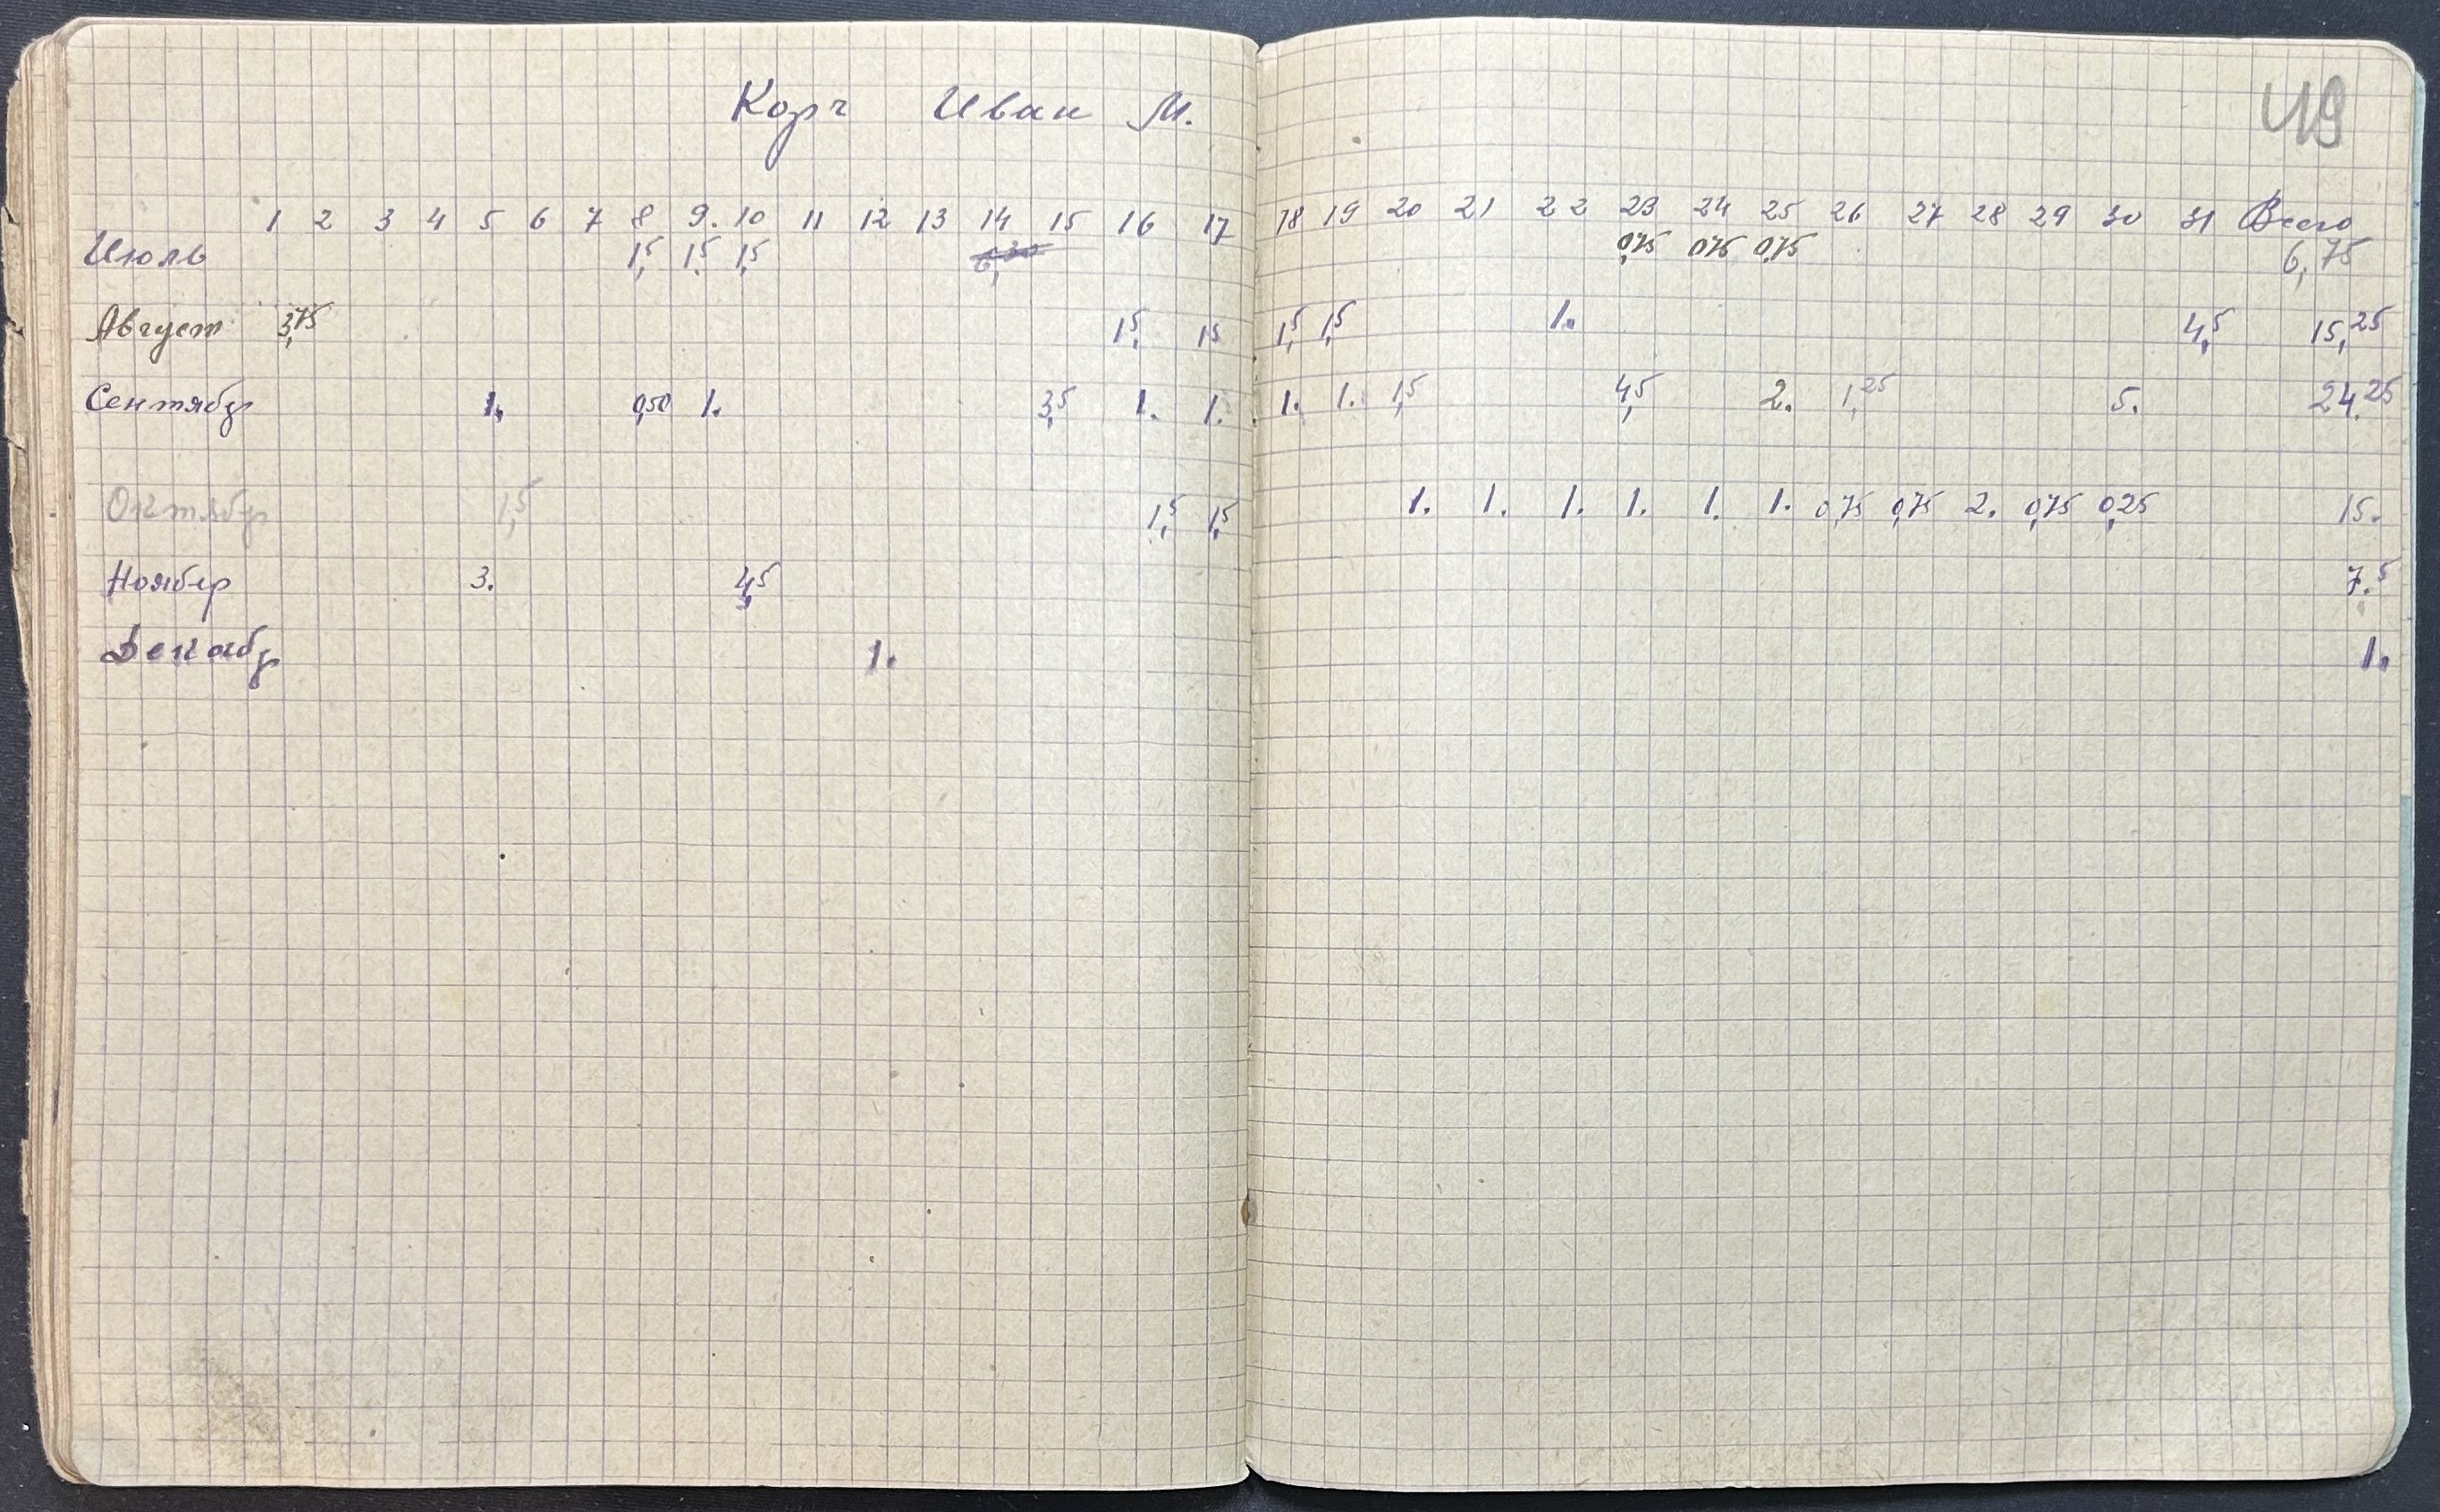 Корч Иван М.
49
1 2 3 4 5 6 7 8 9. 10 11 12 13 14 15 16 17 18 19 20 21 22 23 24 25 26 27 28 29 30 31 Всего
Июль 1,5 1,5 1,5 6,30 0,75 0,75 0,75 6,75
Август 3,75 1,5 1,5 1,5 1,5 1. 4,5 15,25
Сентябр 1. 0,50 1. 3,5 1. 1. 1. 1. 1,5 4,5 2. 1,25 5. 24.25
Октябр 1,5 1,5 1,5 1. 1. 1. 1. 1. 1. 0,75 0,75 2. 0,75 0,25 15.
Ноябер 3. 4,5 7.5
Декабр 1. 1.